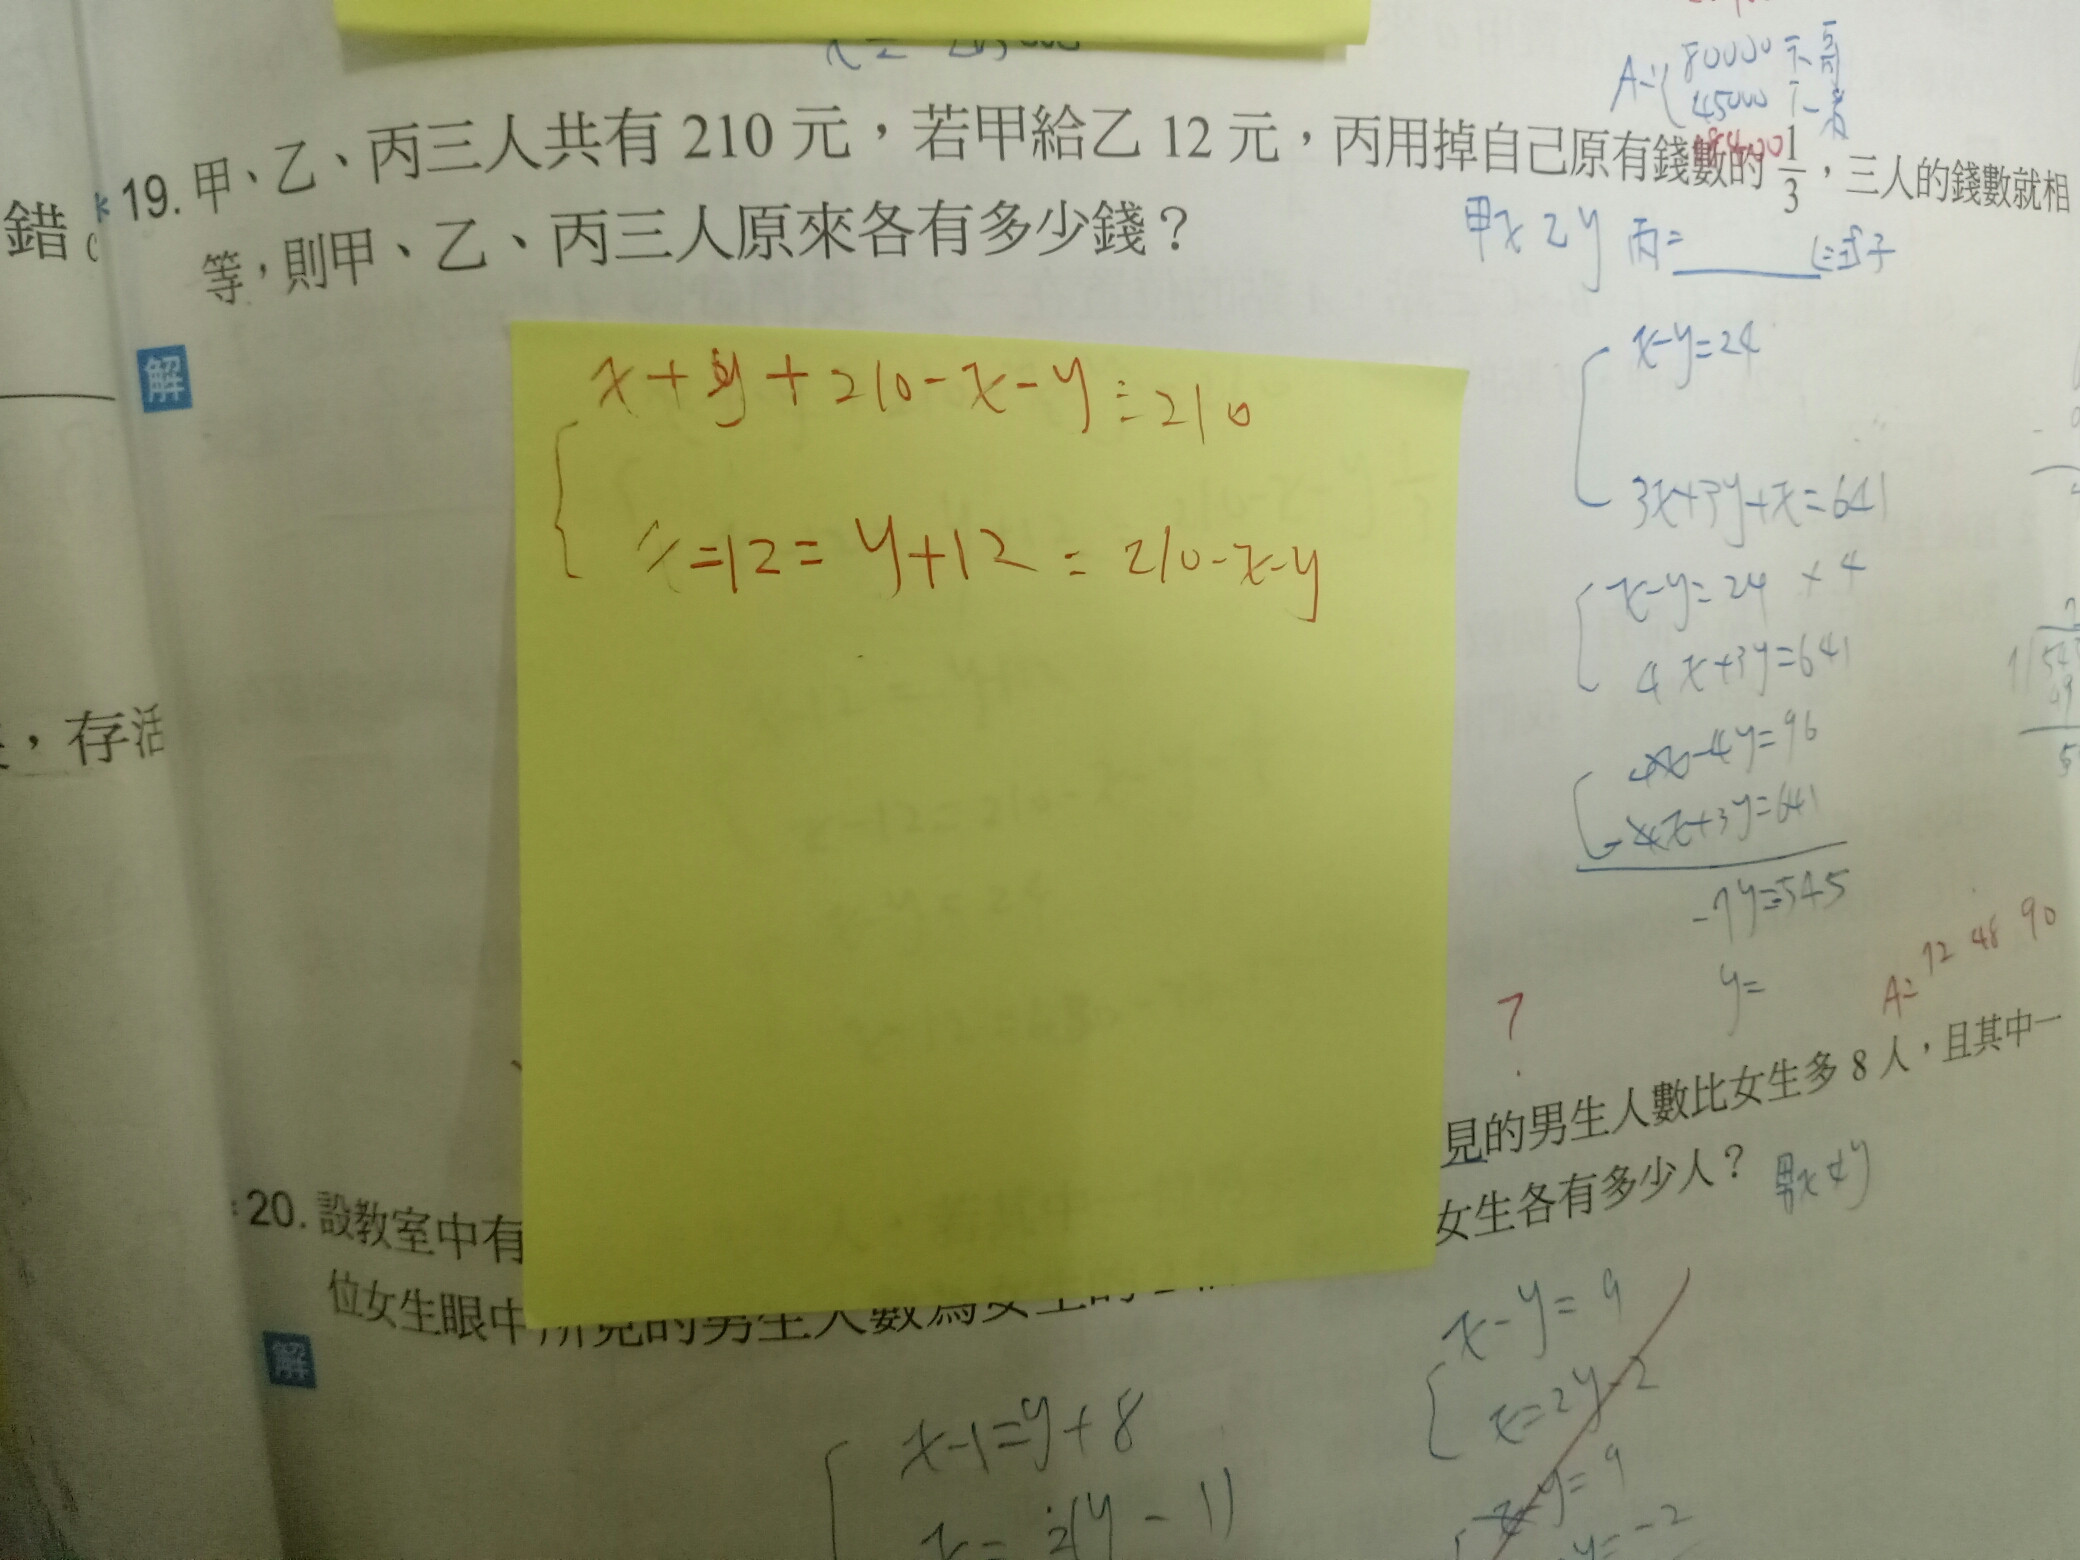 19. 甲、乙、丙三人共有 210 元，若甲給乙 12 元，丙用掉自己原有錢數的 1/3，三人的錢數就相
等，則甲、乙、丙三人原來各有多少錢？
錯。
解
甲x 乙y 丙=
x+y+210-x-y=210
x=12=y+12=210-x-y
x-y=24
3x+3y+x=641
x-y=24 ×4
4x+3y=641
4x-4y=96
4x+3y=641
-7y=545
y=
A= 72 48 90
?
，存活
20. 設教室中有
見的男生人數比女生多 8 人，且其中一
位女生眼中所見的男生人數為女生的
女生各有多少人？
男x 女y
解
x-1=y+8
x=2(y-1)
x-y=9
x=2y-2
A=
80000
45000